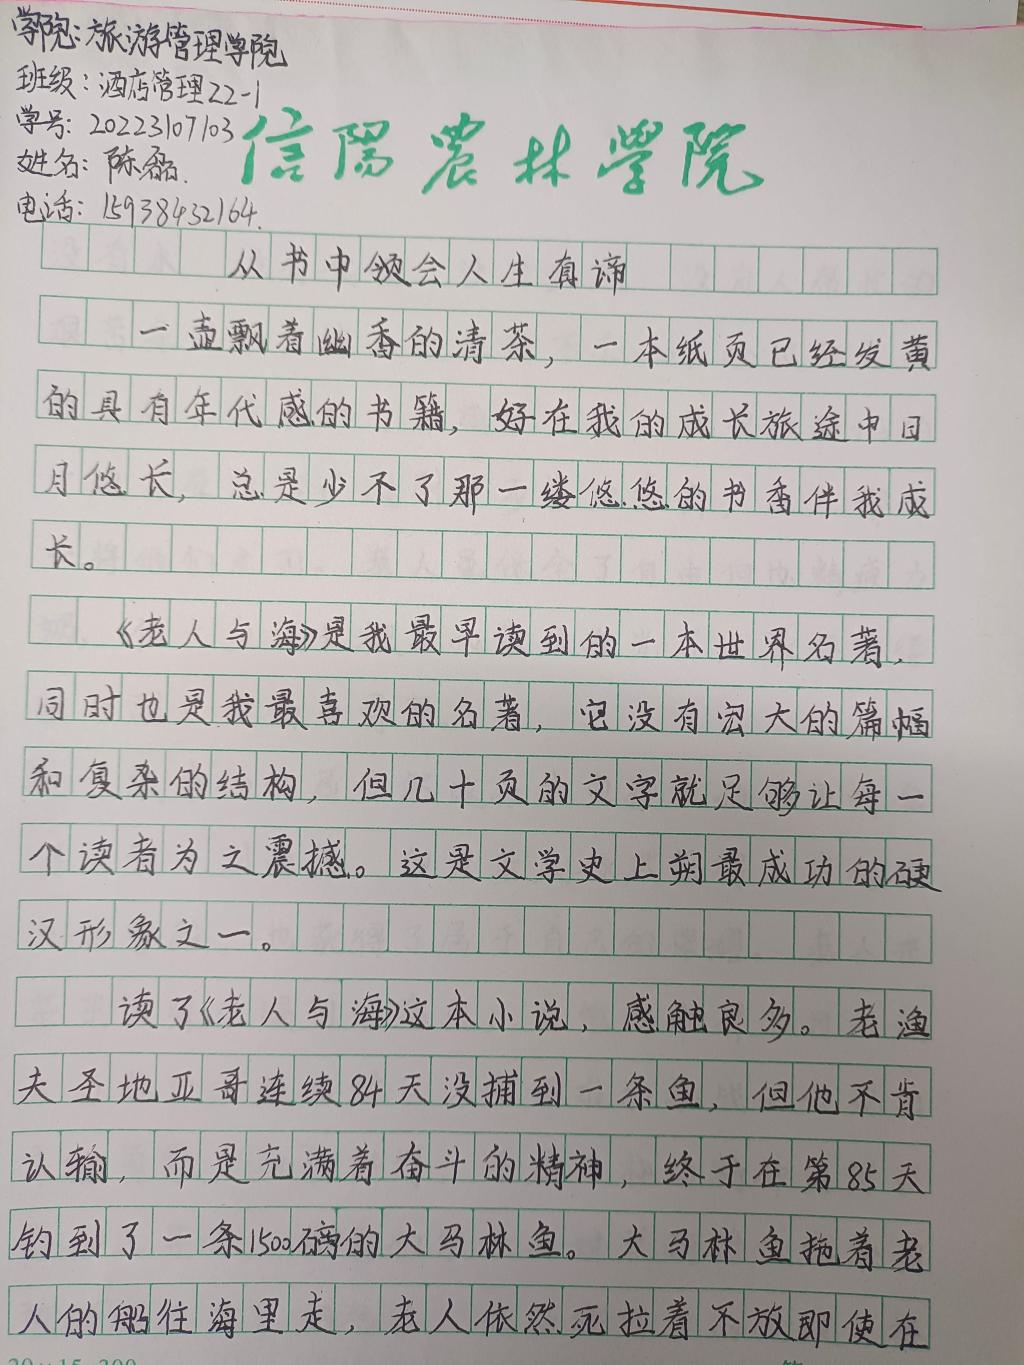 学院:旅游管理学院
班级:酒店管理22-1
学号:20223107103
姓名:陈磊.
电话:15938432164.
信阳农林学院
从书中领会人生真谛
一壶飘着幽香的清茶,一本纸页已经发黄
的具有年代感的书籍,好在我的成长旅途中日
月悠长,总是少不了那一缕悠悠的书香伴我成
长。
《老人与海》是我最早读到的一本世界名著,
同时也是我最喜欢的名著,它没有宏大的篇幅
和复杂的结构,但几十页的文字就足够让每一
个读者为之震撼。这是文学史上朔最成功的硬
汉形象之一。
读了《老人与海》这本小说,感触良多。老渔
夫圣地亚哥连续84天没捕到一条鱼,但他不肯
认输,而是充满着奋斗的精神,终于在第85天
钓到了一条1500磅的大马林鱼。大马林鱼拖着老
人的船往海里走,老人依然死拉着不放即使在
20×15=300